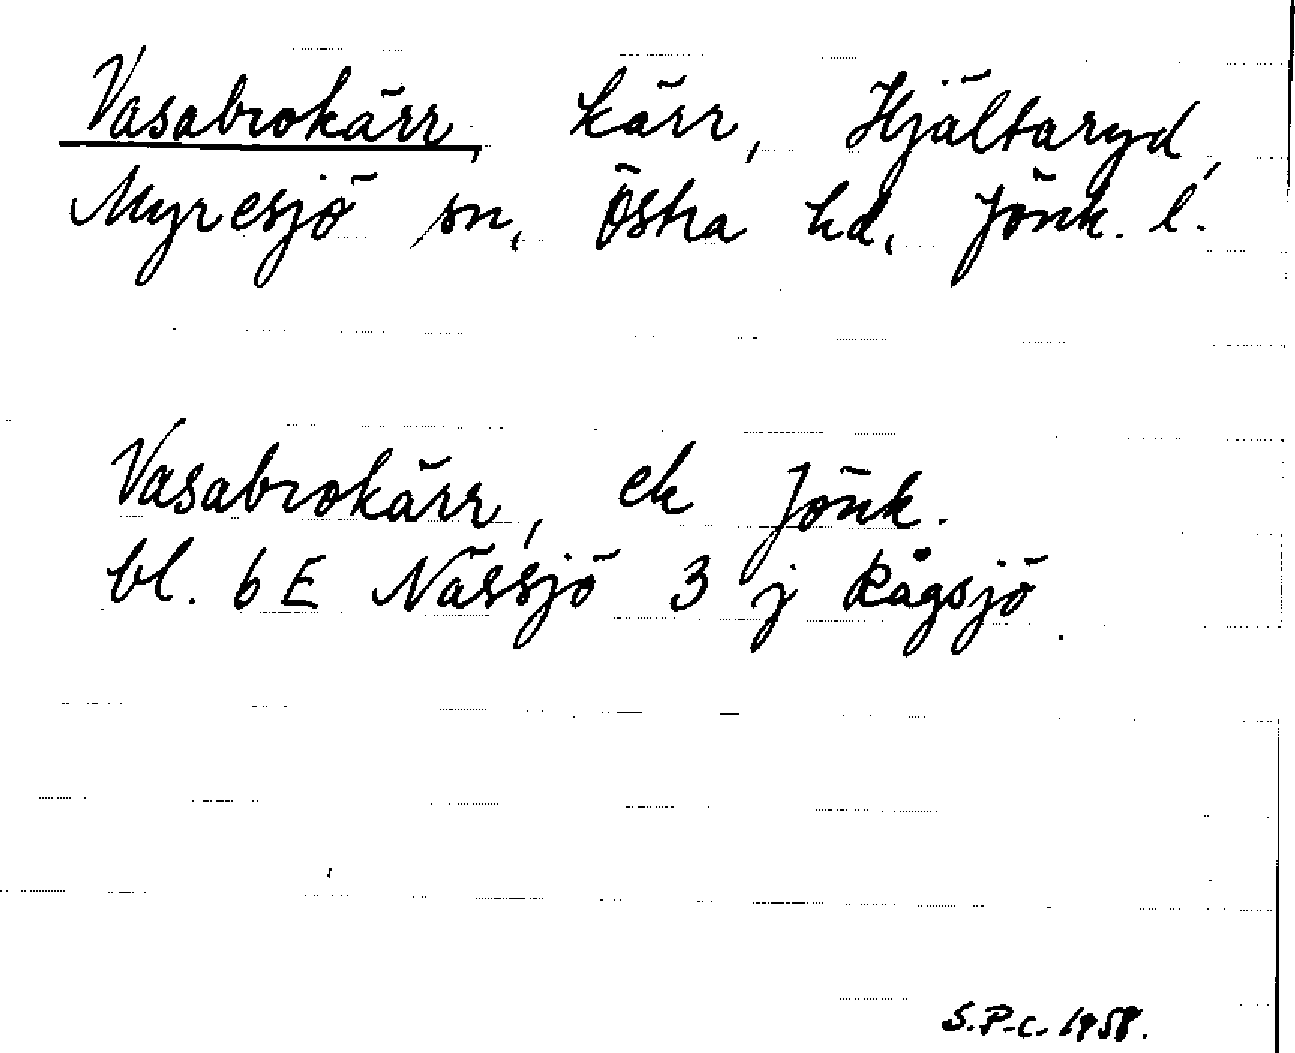 Vasabrokärr, kärr, Hjältaryd,
Myresjö sn, Östra hd, Jönk. l.
Vasabrokärr, ek Jönk.
bl. 6 E Nässjö 3 j Rågsjö.
S.P-c. 1958.